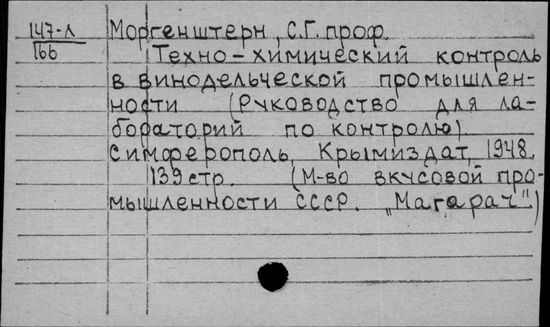 147-Л Моргенштерн, С.Г. проф.
166 Техно-химический контроль
в винодельческой промышлен-
ности (Руководство для ла-
бораторий по контролю).
Симферополь, Крымиздат, 1948.
139 стр. (М-во вкусовой про-
мышленности СССР. „Магарач“.)